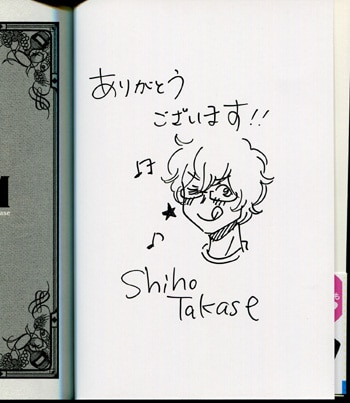 ありがとう
ございます!!
Shiho
Takase